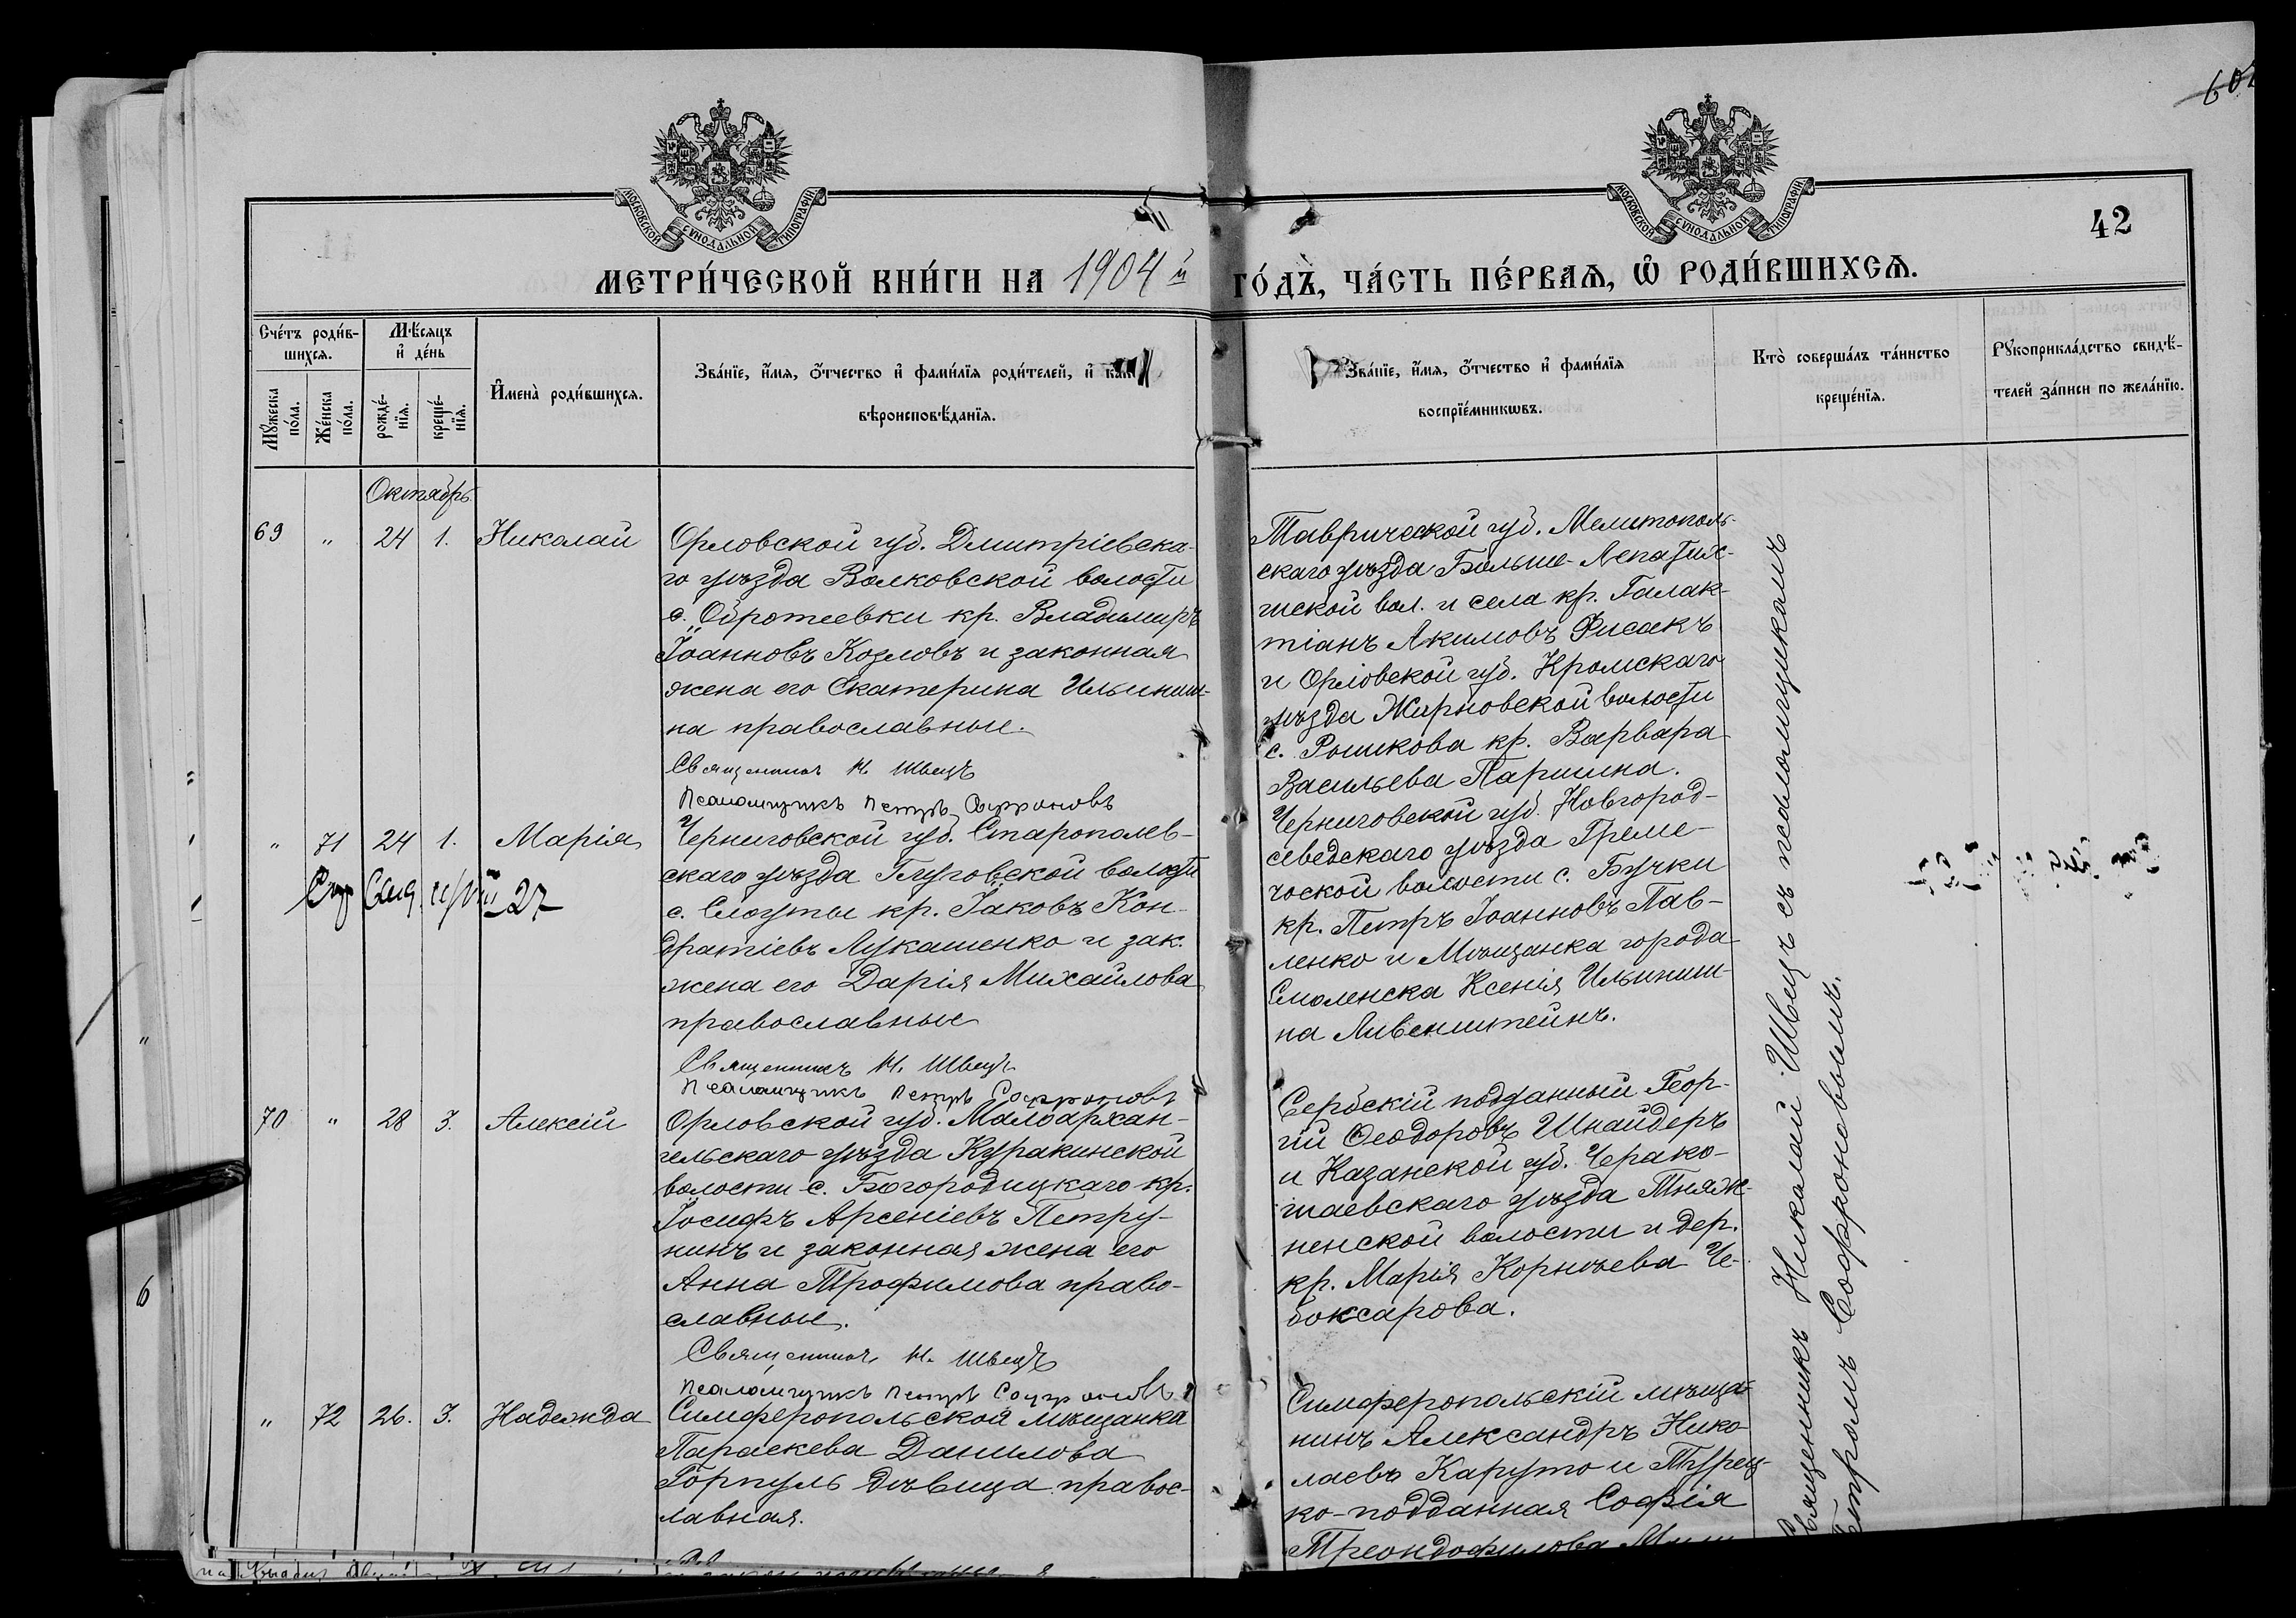 602
МОСКОВСКОЙ СѴНОДАЛЬНОЙ ТИПОГРАФІИ
МОСКОВСКОЙ СѴНОДАЛЬНОЙ ТИПОГРАФІИ
42
МЕТРИ́ЧЕСКОЙ КНИ́ГИ НА 1904 й ГО́ДЪ, ЧА́СТЬ ПЕ́РВАѦ, Ѡ РОДИ́ВШИХСѦ.
Сче́тъ роди́в-
шихся.
Мѣ́сяцъ
и де́нь
Мꙋ́жеска
по́ла.
Же́нска
по́ла.
рожде́-
нїя.
креще́-
нїя.
Имена̀ роди́вшихся.
Зва́нїе, и́мя, о́тчество и фами́лїя роди́телей, и
вѣроисповѣ́данїя.
Зва́нїе, и́мя, о́тчество и фами́лїя
воспрїе́мникѡвъ.
Кто̀ соверша́лъ та́инство
креще́нїя.
Рꙋкоприкла́дство свидѣ́-
телей за́писи по жела́нїю.
Октябрь
69 " 24 1. Николай
Орловской губ. Дмитріевска-
го уѣзда Волковской волости
с. Обротеевки кр. Владимиръ
Іоанновъ Козловъ и законная
жена его Екатерина Ильинич-
на православные.
Священникъ Н. Швецъ
Псаломщикъ Петръ Софроновъ
Таврической губ. Мелитополь-
скаго уѣзда Больше-Лепатих-
ской вол. и села кр. Галак-
тіанъ Акимовъ Фисакъ
и Орловской губ. Кромскаго
уѣзда Жирновской волости
с. Рошкова кр. Варвара
Васильева Паршина.
" 71 24 1. Марія
27
Черниговской губ. Старополев-
скаго уѣзда Глуговской волости
с. Слоуты кр. Іаковъ Кон-
дратіевъ Лукашенко и зак.
жена его Дарія Михайлова
православные
Священникъ Н. Швецъ
Псаломщикъ Петръ Софроновъ
Черниговской губ. Новгород-
севедскаго уѣзда Греме-
чоской волости с. Бучки
кр. Петръ Іоанновъ Пав-
ленко и Мѣщанка города
Смоленска Ксенія Ильинич-
на Ливенштейнъ.
70 " 28 3. Алексій
Орловской губ. Малоархан-
гельскаго уѣзда Куракинской
волости с. Богородицкаго кр.
Іосифъ Арсеніевъ Петру-
нинъ и законная жена его
Анна Трофимова право-
славные.
Священникъ Н. Швецъ
Псаломщикъ Петръ Софроновъ
Сербскій подданный Геор-
гій Ѳеодоровъ Шнайдеръ
и Казанской губ. Черако-
шаевскаго уѣзда Тняж-
ненской волости и дер.
кр. Марія Корнѣева Че-
боксарова.
" 72 26. 3. Надежда
Симферопольской мѣщанка
Параскева Данилова
Горпуль дѣвица правос-
лавная.
Симферопольскій мѣща-
нинъ Александръ Нико-
лаевъ Каруто и Турец-
ко-подданная Софія
Треондофилова
Священникъ Николай Швецъ съ псаломщикомъ
Петромъ Софроновымъ.
6